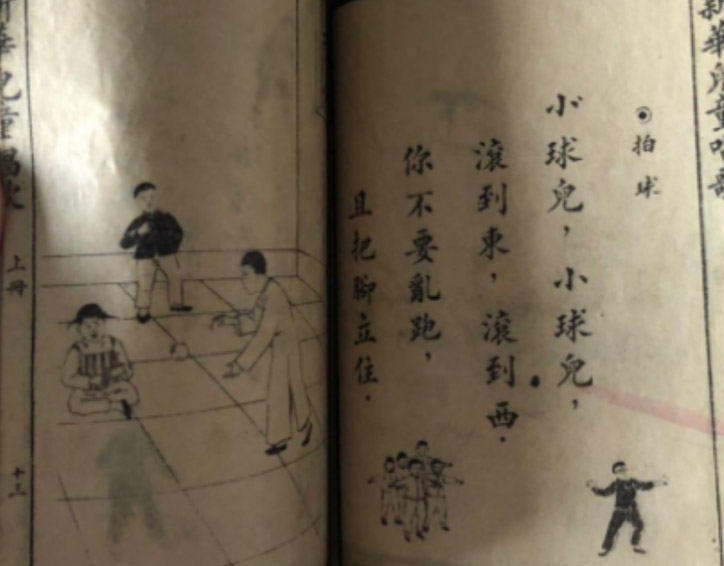 新華兒童唱歌
◉拍球
小球兒，小球兒，
滾到東，滾到西．
你不要亂跑，
且把腳立住．
新華兒童唱歌
上冊
十三